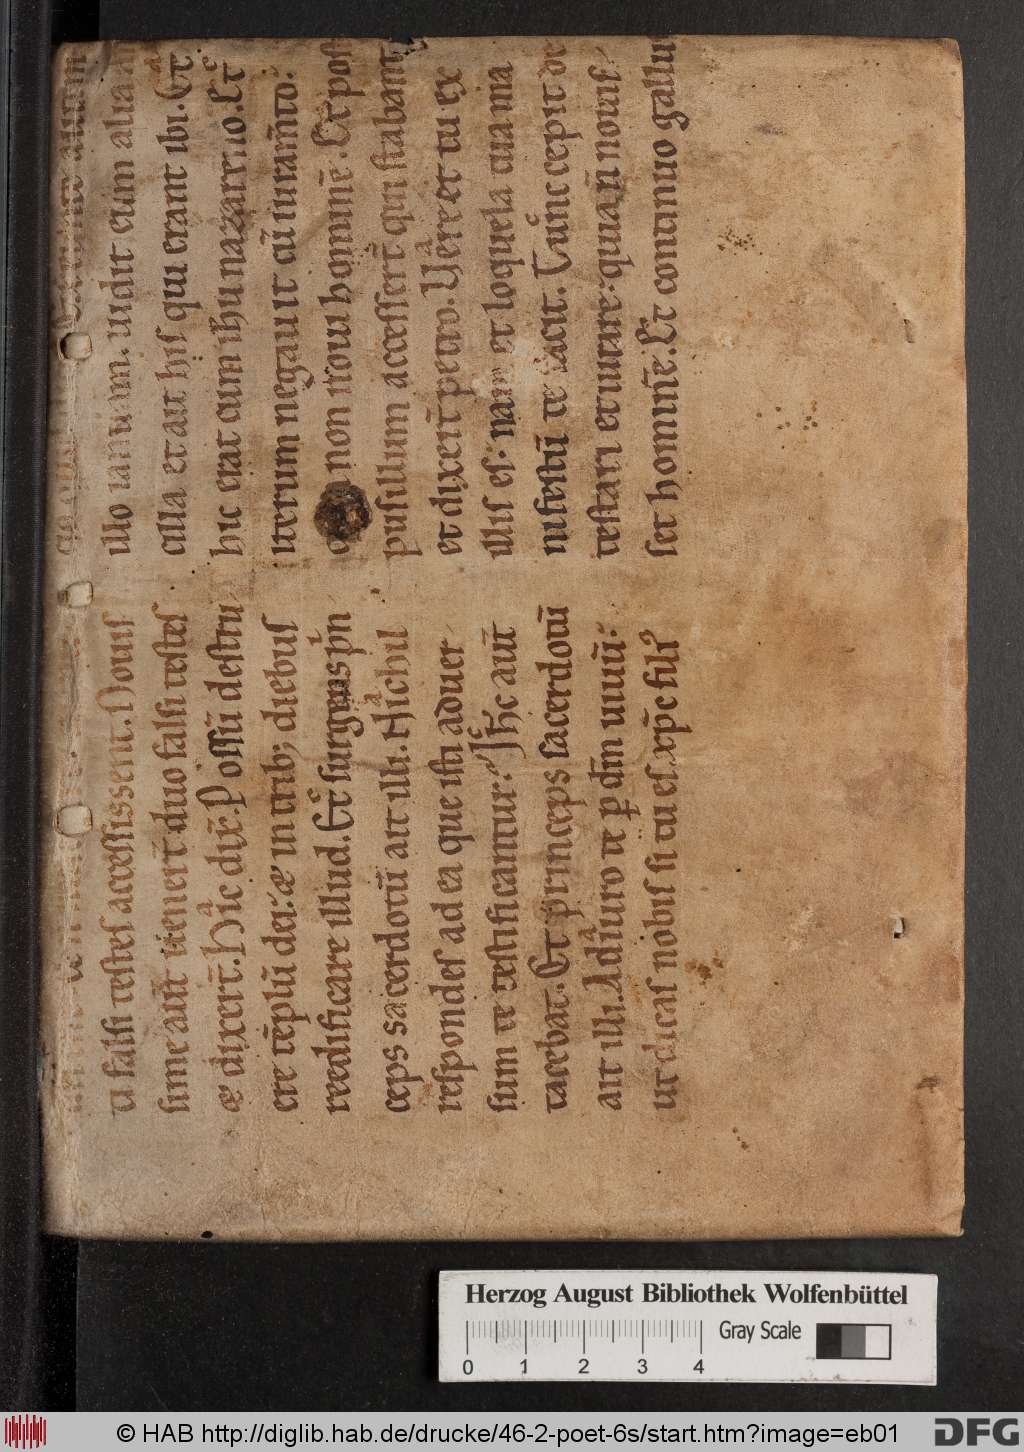 ti falsi testes accessissent. Novis
sime aut̄ uenert̄ duo falsi testes
æ dixert̄. Hic dix̄. Possū destru
ere tēplū dei. æ in trib; diebus
reedificare illud. Et surgens pn̄
ceps sacerdotū ait illi. Nichil
respondes ad ea que isti aduer
sum te testificantur. Ihc aut̄
tacebat. Et princeps sacerdotū
ait illi. Adiuro te p dm̄ uiuū.
ut dicas nobis si tu es xp̄c fili᷒
illo ianuam. uidit eum alia
cilla et ait his qui erant ibi. Et
hic erat cum ihu nazareno. Et
iterum negauit cū iuram̄to.
non noui homine᷒̄. Et post
pusillum accessert̄ qui stabant
et dixert̄ petro. Uere et tu ex
illis es. nam et loquela tua ma
nifestū te facit. Tunc cepit de
testari et iurare. quia n̄ nouis
set homin̄e. Et continuo gallu
Herzog August Bibliothek Wolfenbüttel
Gray Scale
0 1 2 3 4
© HAB http://diglib.hab.de/drucke/46-2-poet-6s/start.htm?image=eb01
DFG